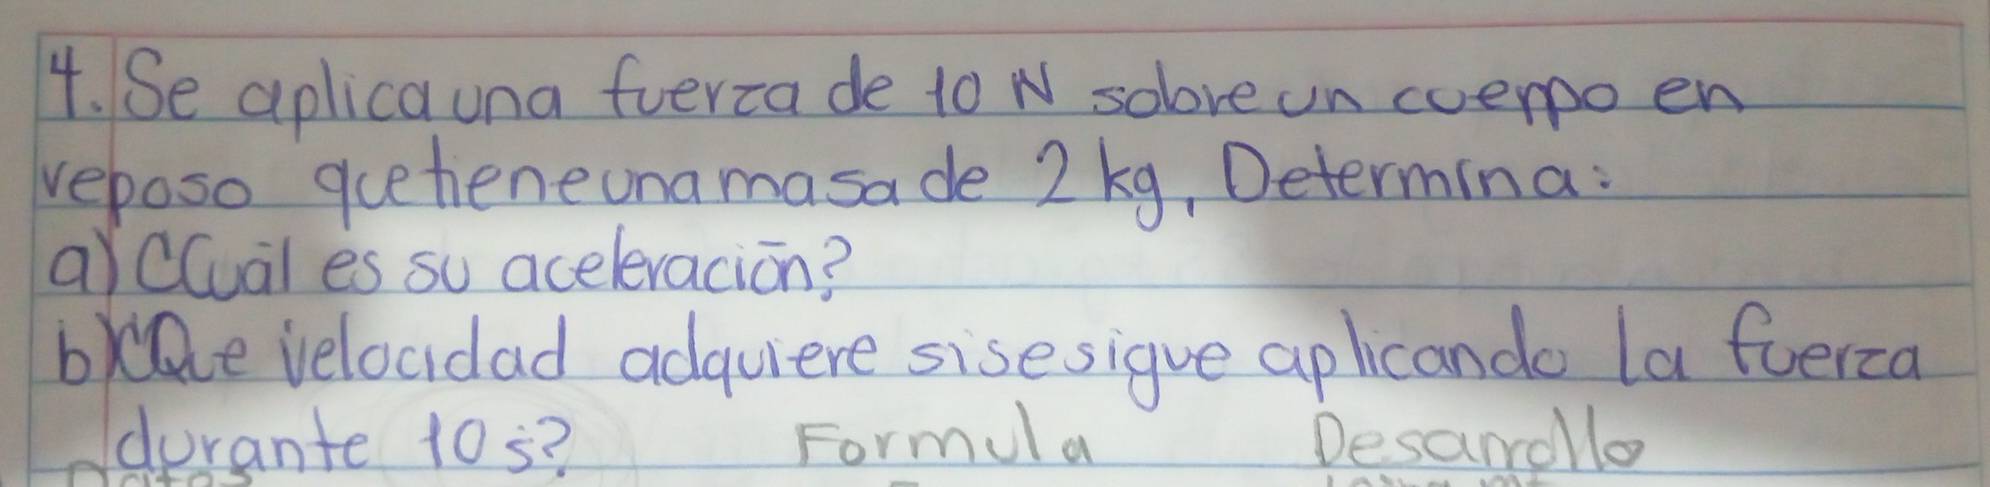 4. Se aplica una fuerza de 10 N sobre un cuerpo en
reposo que tiene una masa de 2 kg, Determina:
a) ¿Cuál es su aceleración?
b) ¿Que velocidad adquiere si se sigue aplicando la fuerza
durante 10 s? Formula Desarrollo
Datos